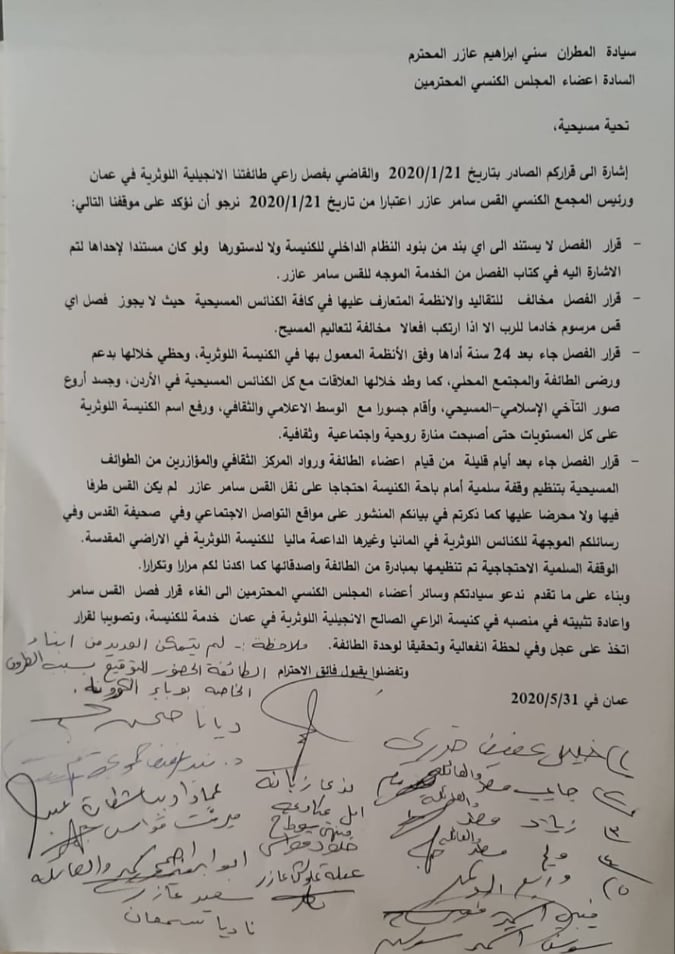 سيادة المطران سني ابراهيم عازر المحترم
السادة اعضاء المجلس الكنسي المحترمين
تحية مسيحية،
إشارة الى قراركم الصادر بتاريخ 2020/1/21 والقاضي بفصل راعي طائفتنا الانجيلية اللوثرية في عمان
ورئيس المجمع الكنسي القس سامر عازر اعتبارا من تاريخ 2020/1/21 نرجو أن نؤكد على موقفنا التالي:
- قرار الفصل لا يستند الى اي بند من بنود النظام الداخلي للكنيسة ولا لدستورها ولو كان مستندا لإحداها لتم
الاشارة اليه في كتاب الفصل من الخدمة الموجه للقس سامر عازر.
- قرار الفصل مخالف للتقاليد والانظمة المتعارف عليها في كافة الكنائس المسيحية حيث لا يجوز فصل اي
قس مرسوم خادما للرب الا اذا ارتكب افعالا مخالفة لتعاليم المسيح.
- قرار الفصل جاء بعد 24 سنة أداها وفق الأنظمة المعمول بها في الكنيسة اللوثرية، وحظي خلالها بدعم
ورضى الطائفة والمجتمع المحلي، كما وطد خلالها العلاقات مع كل الكنائس المسيحية في الأردن، وجسد أروع
صور التآخي الإسلامي-المسيحي، وأقام جسورا مع الوسط الاعلامي والثقافي، ورفع اسم الكنيسة اللوثرية
على كل المستويات حتى أصبحت منارة روحية واجتماعية وثقافية.
- قرار الفصل جاء بعد أيام قليلة من قيام اعضاء الطائفة ورواد المركز الثقافي والمؤازرين من الطوائف
المسيحية بتنظيم وقفة سلمية أمام باحة الكنيسة احتجاجا على نقل القس سامر عازر لم يكن القس طرفا
فيها ولا محرضا عليها كما ذكرتم في بيانكم المنشور على مواقع التواصل الاجتماعي وفي صحيفة القدس وفي
رسائلكم الموجهة للكنائس اللوثرية في المانيا وغيرها الداعمة ماليا للكنيسة اللوثرية في الاراضي المقدسة.
الوقفة السلمية الاحتجاجية تم تنظيمها بمبادرة من الطائفة واصدقائها كما اكدنا لكم مرارا وتكرارا.
وبناء على ما تقدم ندعو سيادتكم وسائر أعضاء المجلس الكنسي المحترمين الى الغاء قرار فصل القس سامر
واعادة تثبيته في منصبه في كنيسة الراعي الصالح الانجيلية اللوثرية في عمان خدمة للكنيسة، وتصويبا لقرار
اتخذ على عجل وفي لحظة انفعالية وتحقيقا لوحدة الطائفة.
ملاحظة :- لم يتمكن العديد من ابناء
وتفضلوا بقبول فائق الاحترام
الطائفة الحضور للتوقيع بسبب الظروف
الخاصة بوباء الكورونا.
عمان في 2020/5/31
ميرفت قواس
سعيد عازر
ناديا سمعان